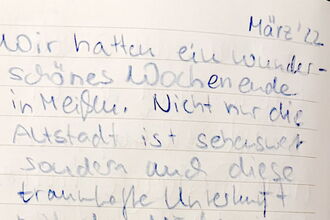 März '22
Wir hatten ein wunder-
schönes Wochenende
in Meißen. Nicht nur die
Altstadt ist sehenswert
sondern auch diese
traumhafte Unterkunft